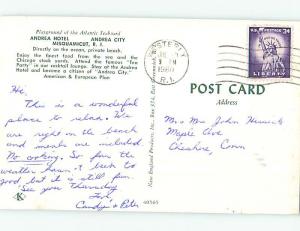 Playground of the Atlantic Seaboard
ANDREA HOTEL ANDREA CITY
MISQUAMICUT, R. I.
Directly on the ocean, private beach.
Enjoy the finest food from the sea and the
Chicago stock yards. Attend the famous "Zoo
Party" in our cocktail lounge. Stay at the Andrea
Hotel and become a citizen of "Andrea City".
American & European Plan
Hi,
This is a wonderful
place to relax. We
are right on the beach
and meals are included
No cooking. So far the
weather hasn't been to
good but it is still fun.
See you Thursday
Love,
Candy & Peter
K
New England Products, Inc., Box
40565
WESTERLY
PM
R.I.
U.S. POSTAGE 3¢
LIBERTY
POST CARD
Address
Mr & Mrs John
Maple Ave
Cheshire, Conn